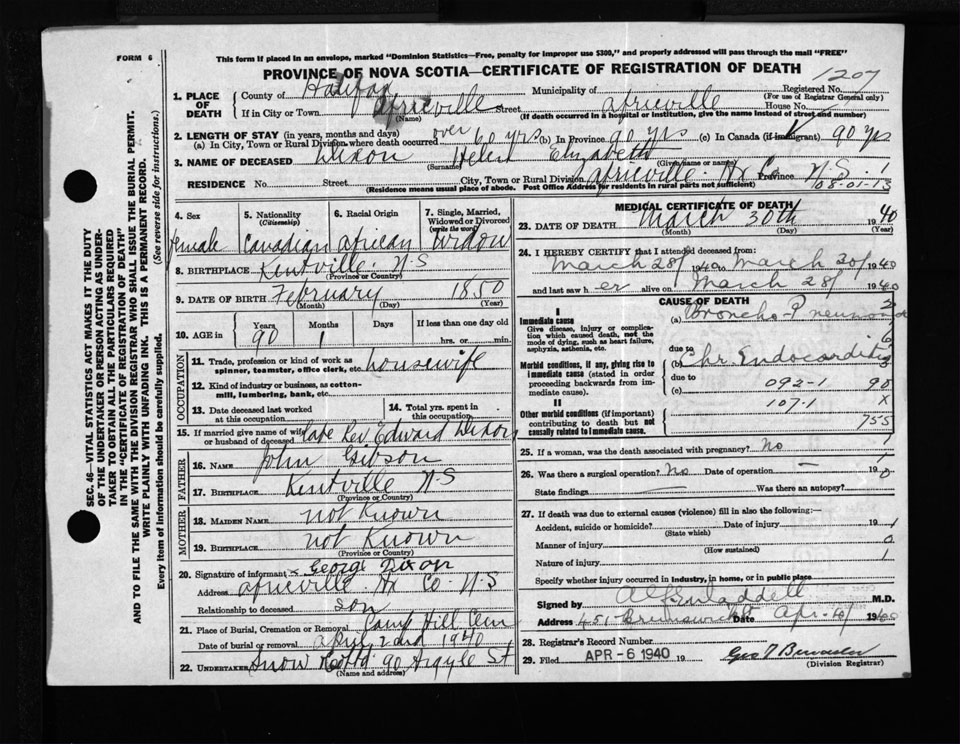 FORM 6
This form if placed in an envelope, marked "Dominion Statistics—Free, penalty for improper use $300," and properly addressed will pass through the mail "FREE"
PROVINCE OF NOVA SCOTIA—CERTIFICATE OF REGISTRATION OF DEATH
1207
1. PLACE OF DEATH
County of Halifax Municipality of Registered No. (For use of Registrar General only)
If in City or Town Africville (Name) Street Africville House No.
(If death occurred in a hospital or institution, give the name instead of street and number)
2. LENGTH OF STAY (in years, months and days)
(a) In City, Town or Rural Division where death occurred over 60 yrs (b) In Province 90 yrs (c) In Canada (if immigrant) 90 yrs
3. NAME OF DECEASED Dixon (Surname) Helen Elizabeth (Given name or names)
RESIDENCE No. Street City, Town or Rural Division Africville Hx Co. Province N S
(Residence means usual place of abode. Post Office Address for residents in rural parts not sufficient)
08-01-13
4. Sex female
5. Nationality (Citizenship) Canadian
6. Racial Origin African
7. Single, Married, Widowed or Divorced (write the word) widow
8. BIRTHPLACE Kentville N S (Province or Country)
9. DATE OF BIRTH February (Month) (Day) 1850 (Year)
10. AGE in Years 90 Months 1 Days If less than one day old hrs. or min.
OCCUPATION
11. Trade, profession or kind of work as spinner, teamster, office clerk, etc. housewife
12. Kind of industry or business, as cotton-mill, lumbering, bank, etc.
13. Date deceased last worked at this occupation
14. Total yrs. spent in this occupation
15. If married give name of wife or husband of deceased late Rev Edward Dixon
FATHER
16. NAME John Gibson
17. BIRTHPLACE Kentville N S (Province or Country)
MOTHER
18. MAIDEN NAME not known
19. BIRTHPLACE not known (Province or Country)
20. Signature of informant x George Dixon
Address Africville Hx Co. N S
Relationship to deceased son
21. Place of Burial, Cremation or Removal Camp Hill Cem
Date of burial or removal April 2nd 1940
22. UNDERTAKER Snow & Co Ltd 90 Argyle St
(Name and address)
MEDICAL CERTIFICATE OF DEATH
23. DATE OF DEATH March (Month) 30th (Day) 1940 (Year)
24. I HEREBY CERTIFY that I attended deceased from:
March 28/ 1940 to March 30/ 1940
and last saw her alive on March 28/ 1940
CAUSE OF DEATH
I
Immediate cause
Give disease, injury or complication which caused death, not the mode of dying, such as heart failure, asphyxia, asthenia, etc.
(a) Broncho-Pneumonia
due to
Morbid conditions, if any, giving rise to immediate cause (stated in order proceeding backwards from immediate cause).
(b) Chr. Endocarditis
due to
(c) 092-1 90
107-1 x
II
Other morbid conditions (if important) contributing to death but not causally related to immediate cause.
755
25. If a woman, was the death associated with pregnancy? No
26. Was there a surgical operation? No Date of operation 19
State findings Was there an autopsy?
27. If death was due to external causes (violence) fill in also the following:—
Accident, suicide or homicide? Date of injury 19
(State which)
Manner of injury
(How sustained)
Nature of injury
Specify whether injury occurred in industry, in home, or in public place
Signed by Alf Waddell M.D.
Address 451 Brunswick St Date Apr 1940
28. Registrar's Record Number
29. Filed APR - 6 1940 19 Geo
(Division Registrar)
SEC. 46—VITAL STATISTICS ACT MAKES IT THE DUTY
OF THE UNDERTAKER OR PERSON ACTING AS UNDER-
TAKER TO OBTAIN ALL THE PARTICULARS REQUIRED
IN THE "CERTIFICATE OF REGISTRATION OF DEATH"
AND TO FILE THE SAME WITH THE DIVISION REGISTRAR WHO SHALL ISSUE THE BURIAL PERMIT.
WRITE PLAINLY WITH UNFADING INK. THIS IS A PERMANENT RECORD.
Every item of information should be carefully supplied. (See reverse side for instructions.)